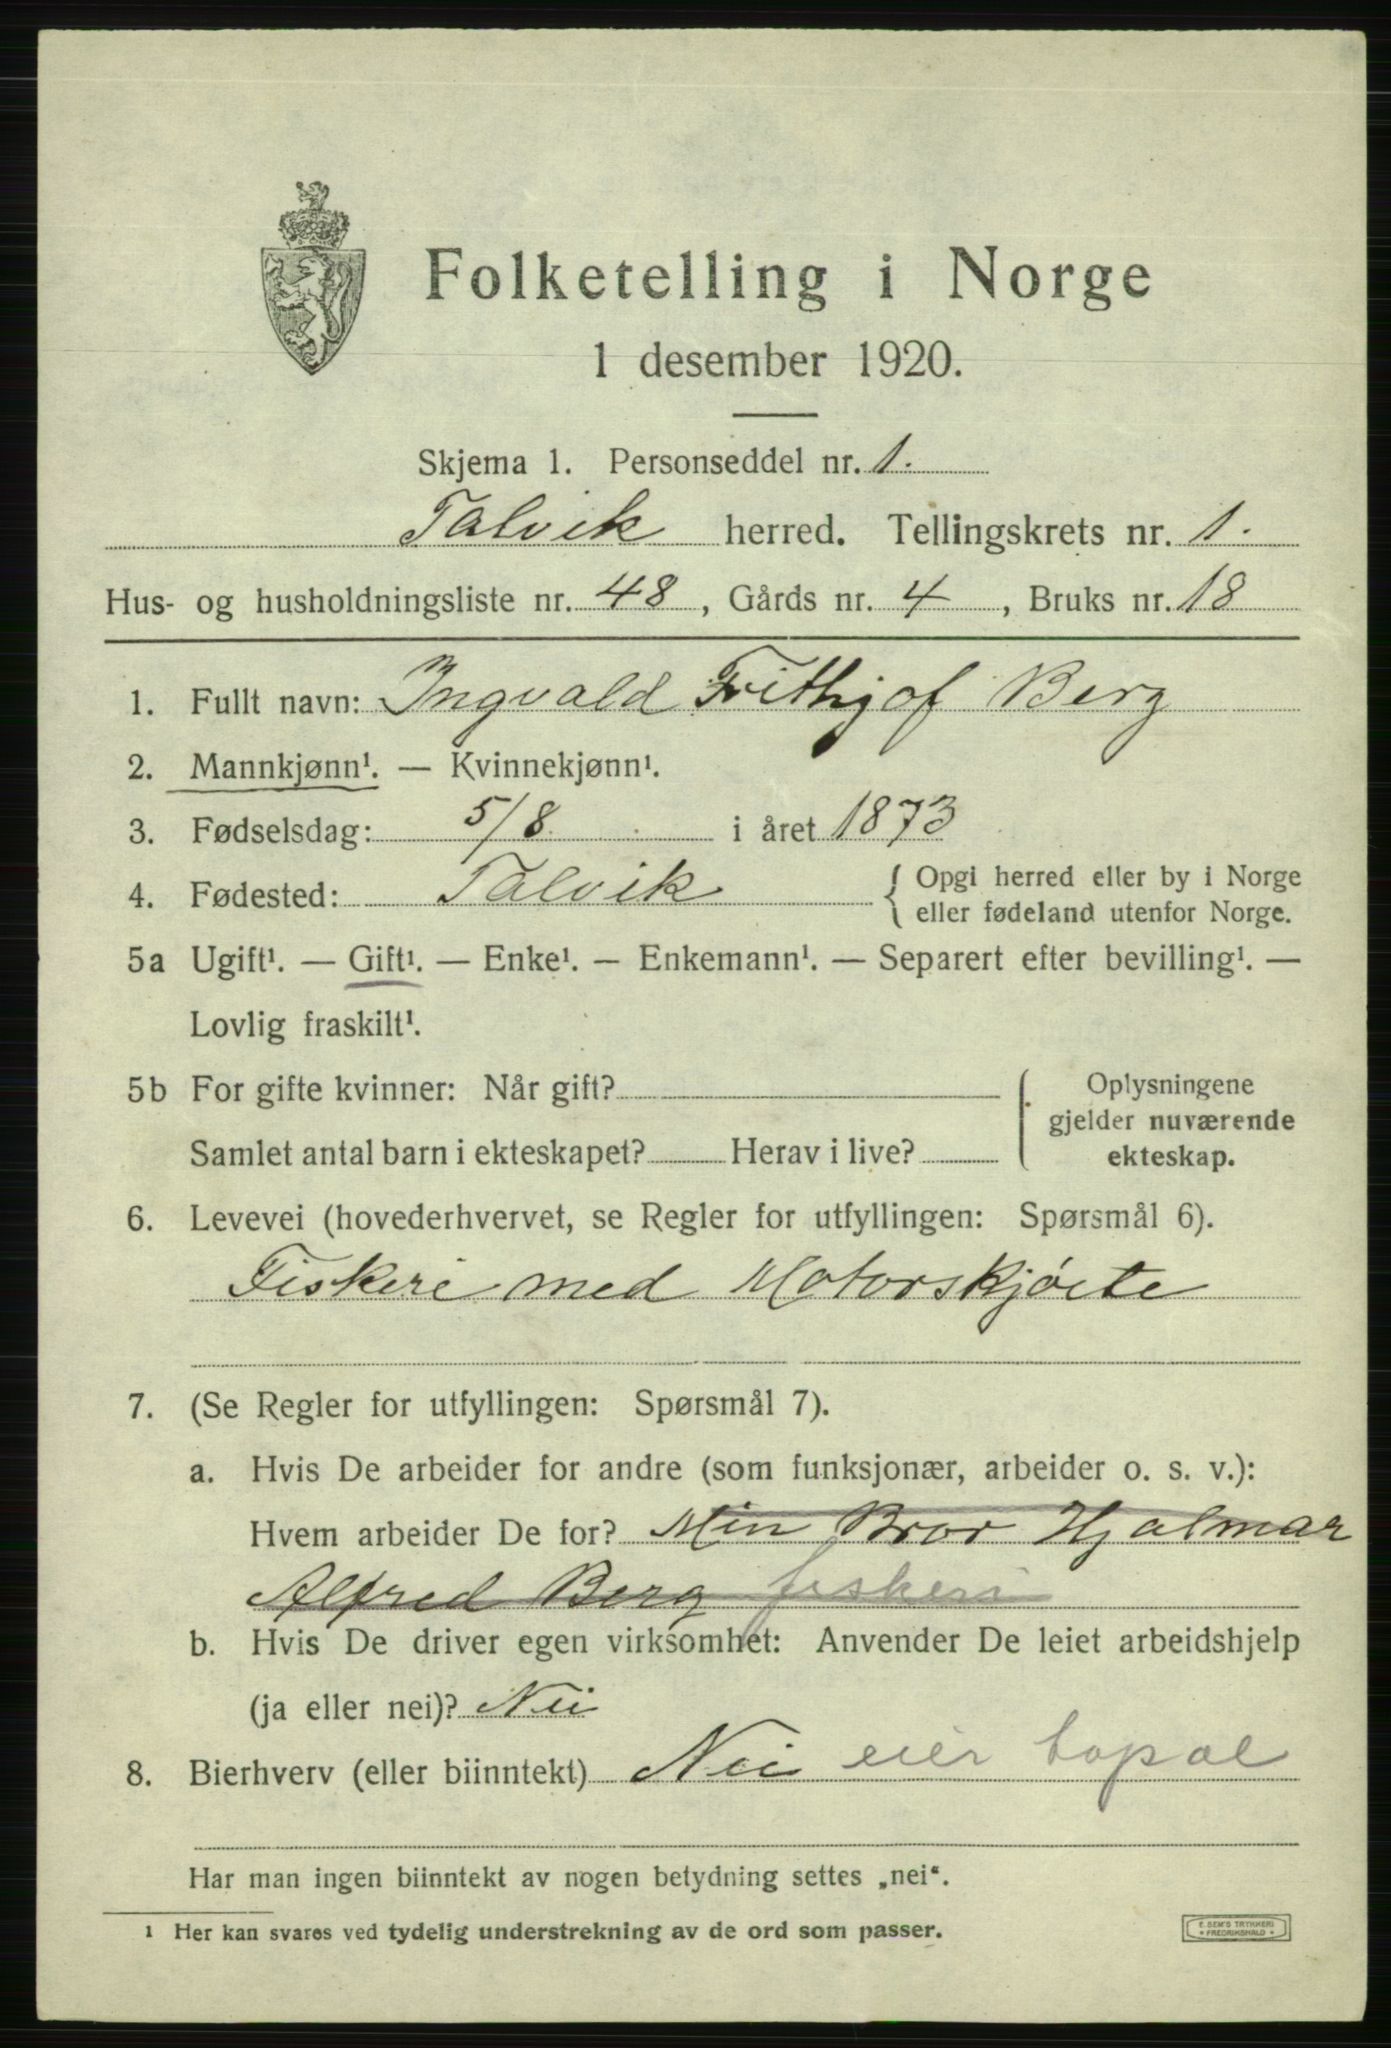 Folketelling i Norge
1 desember 1920.
Skjema 1. Personseddel nr. 1.
Talvik herred. Tellingskrets nr. 1.
Hus- og husholdningsliste nr. 48, Gårds nr. 4, Bruks nr. 18
1. Fullt navn: Ingvald Frithjof Berg
2. Mannkjønn¹. — Kvinnekjønn¹.
3. Fødselsdag: 5/8 i året 1873
4. Fødested: Talvik { Opgi herred eller by i Norge
eller fødeland utenfor Norge.
5a Ugift¹. — Gift¹. — Enke¹. — Enkemann¹. — Separert efter bevilling¹. —
Lovlig fraskilt¹.
5b For gifte kvinner: Når gift?
Samlet antal barn i ekteskapet? Herav i live?
Oplysningene
gjelder nuværende
ekteskap.
6. Levevei (hovederhvervet, se Regler for utfyllingen: Spørsmål 6).
Fiskeri med Motorskjöite
7. (Se Regler for utfyllingen: Spørsmål 7).
a. Hvis De arbeider for andre (som funksjonær, arbeider o. s. v.):
Hvem arbeider De for? Min Bror Hjalmar
Alfred Berg fiskeri
b. Hvis De driver egen virksomhet: Anvender De leiet arbeidshjelp
(ja eller nei)? Nei
8. Bierhverv (eller biinntekt) Nei eier
Har man ingen biinntekt av nogen betydning settes „nei“.
1 Her kan svares ved tydelig understrekning av de ord som passer.
E. SEM'S TRYKKERI
* FREDRIKSHALD *